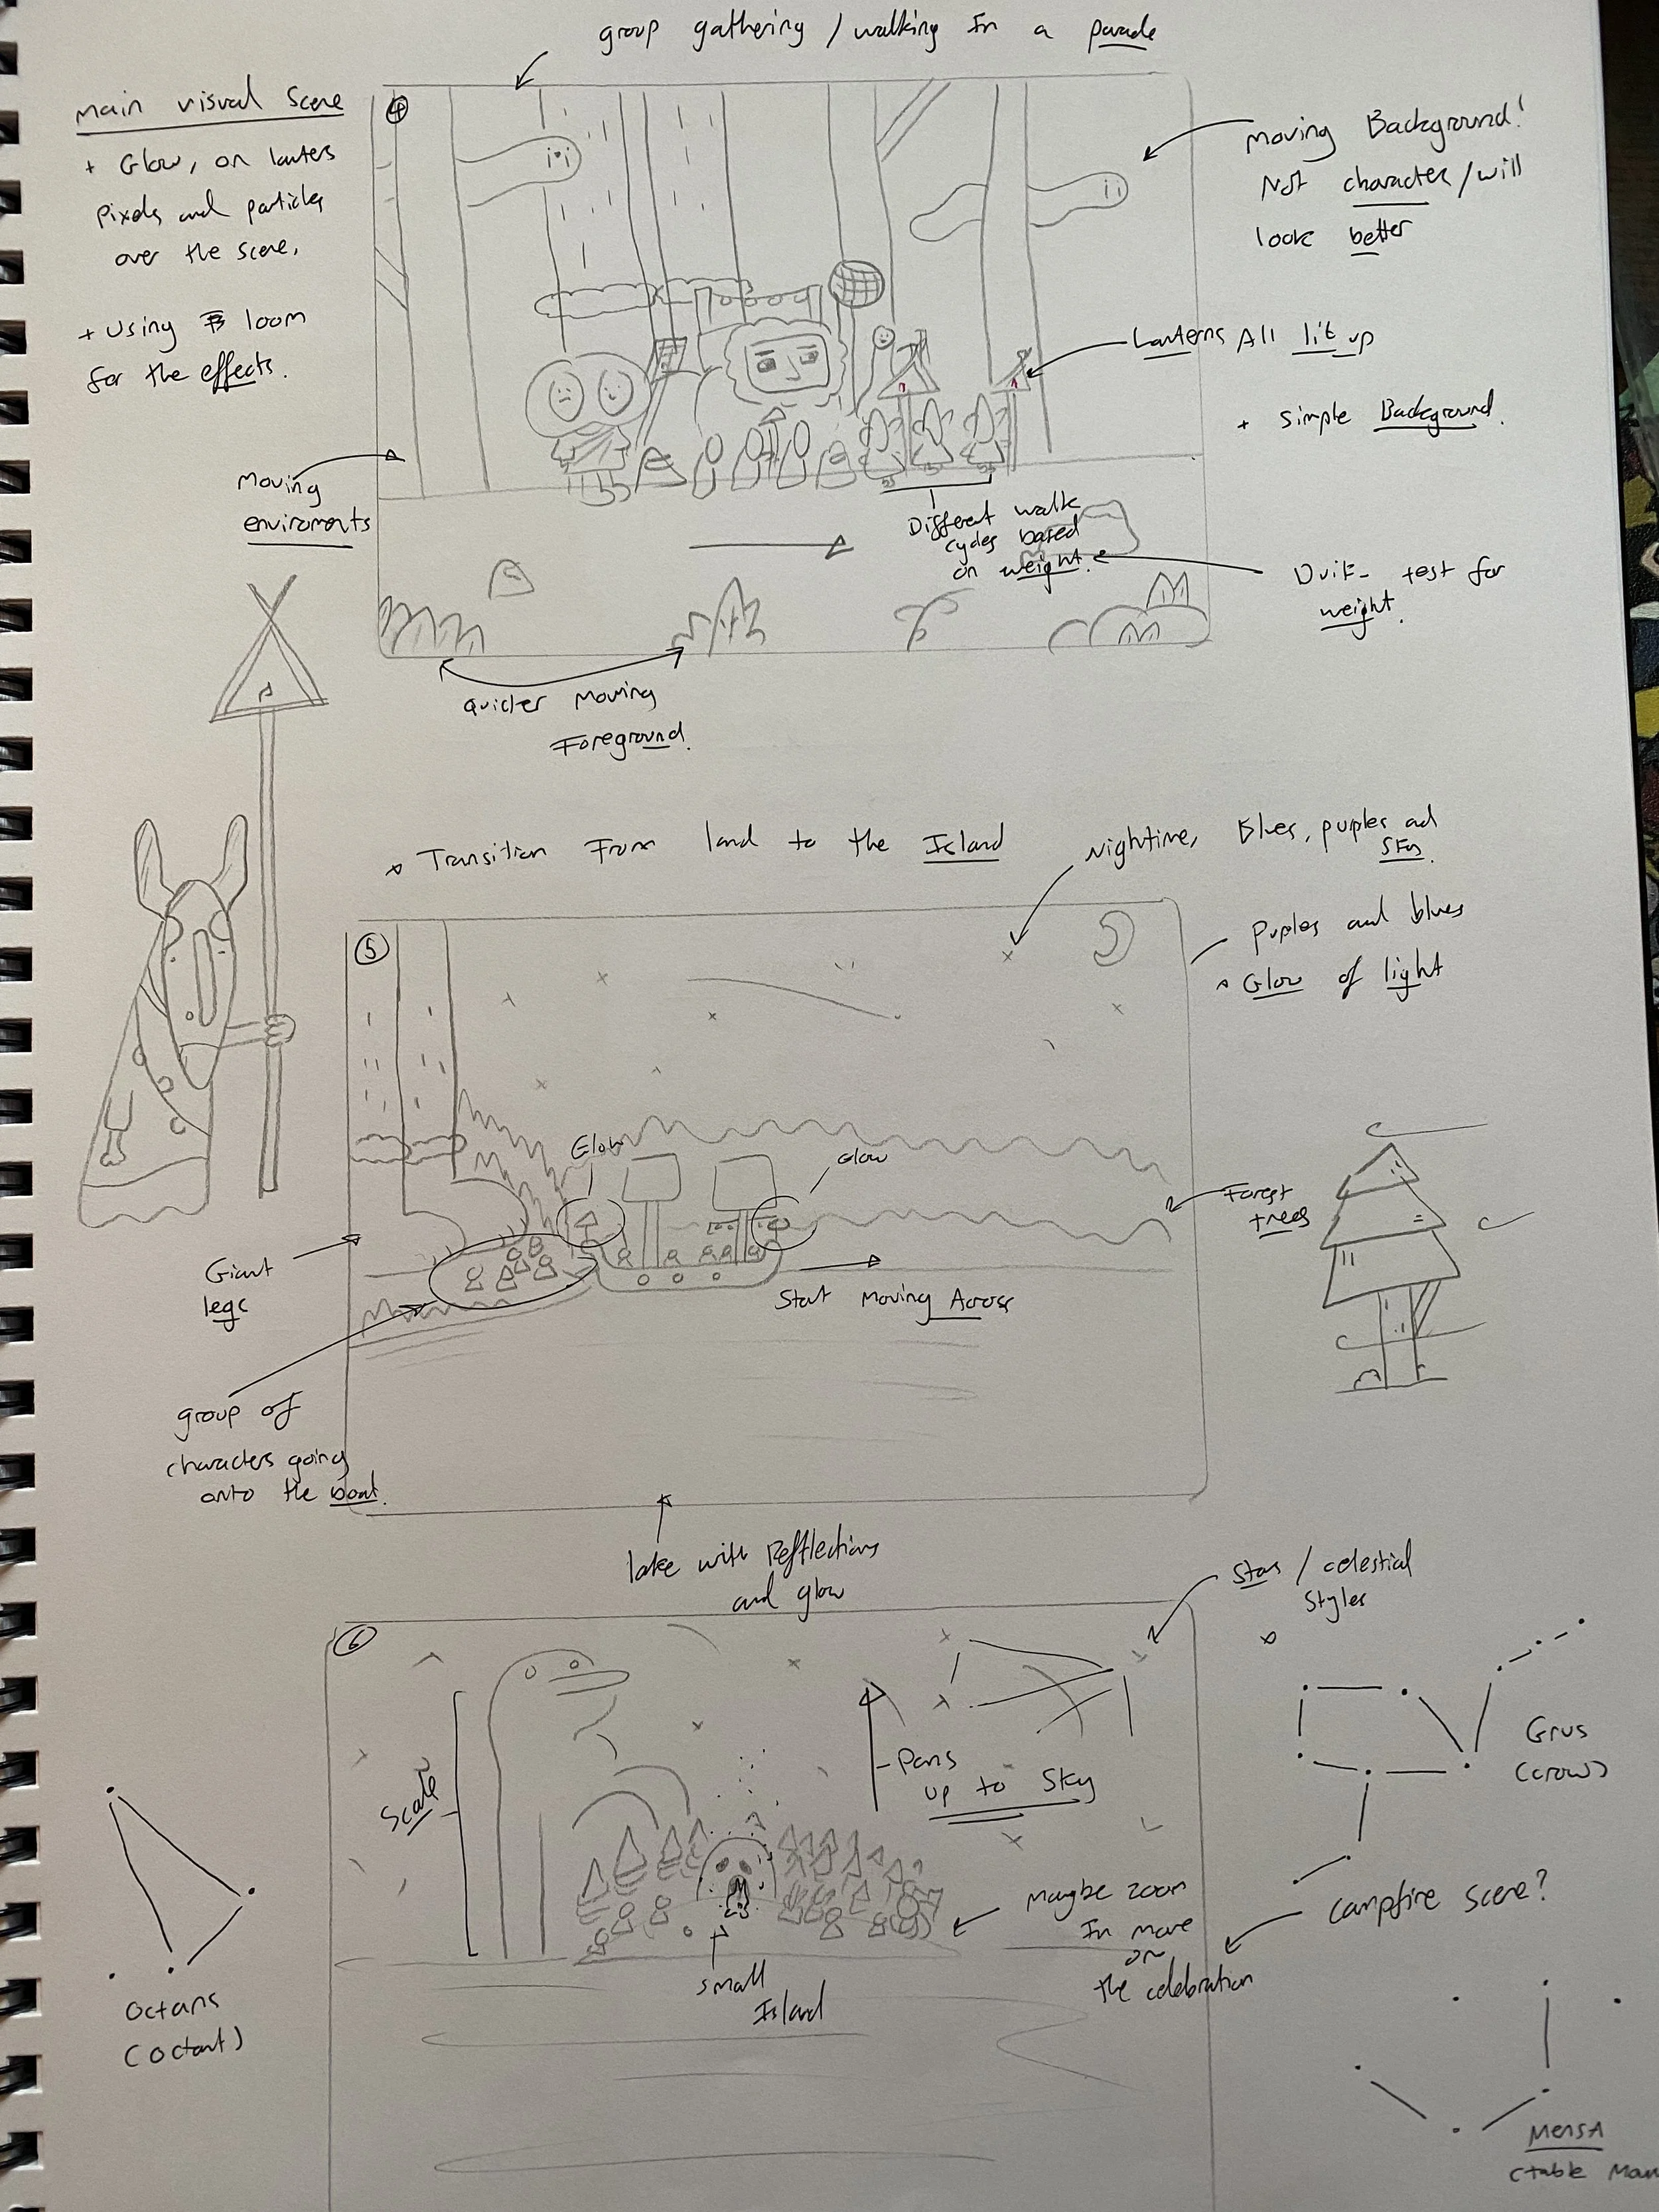 group gathering / walking In a parade
main visual Scene
+ Glow, on lanters
Pixels and particles
over the scene,
+ Using loom
for the effects.
4
Moving Background!
Not character / will
look better
Lanterns All lit up
+ Simple Background.
Moving
enviroments
Different walk
cycles based
on weight.
test for
weight.
Quicker Moving
Foreground.
Transition From land to the Island
Nightime, Blues, puples ad
Sky.
5
Puples and blues
Glow of light
Glow
Glow
Forest
trees
Giant
legs
Start Moving Across
group of
characters going
onto the boat.
lake with Refflections
and glow
Stars / celestial
Styles
6
Scale
Pans
up to Sky
Grus
(crow)
Maybe zoom
In more
on
the celebration
Campfire Scene?
Small
Island
Octans
(Octant)
MensA
(table Moun